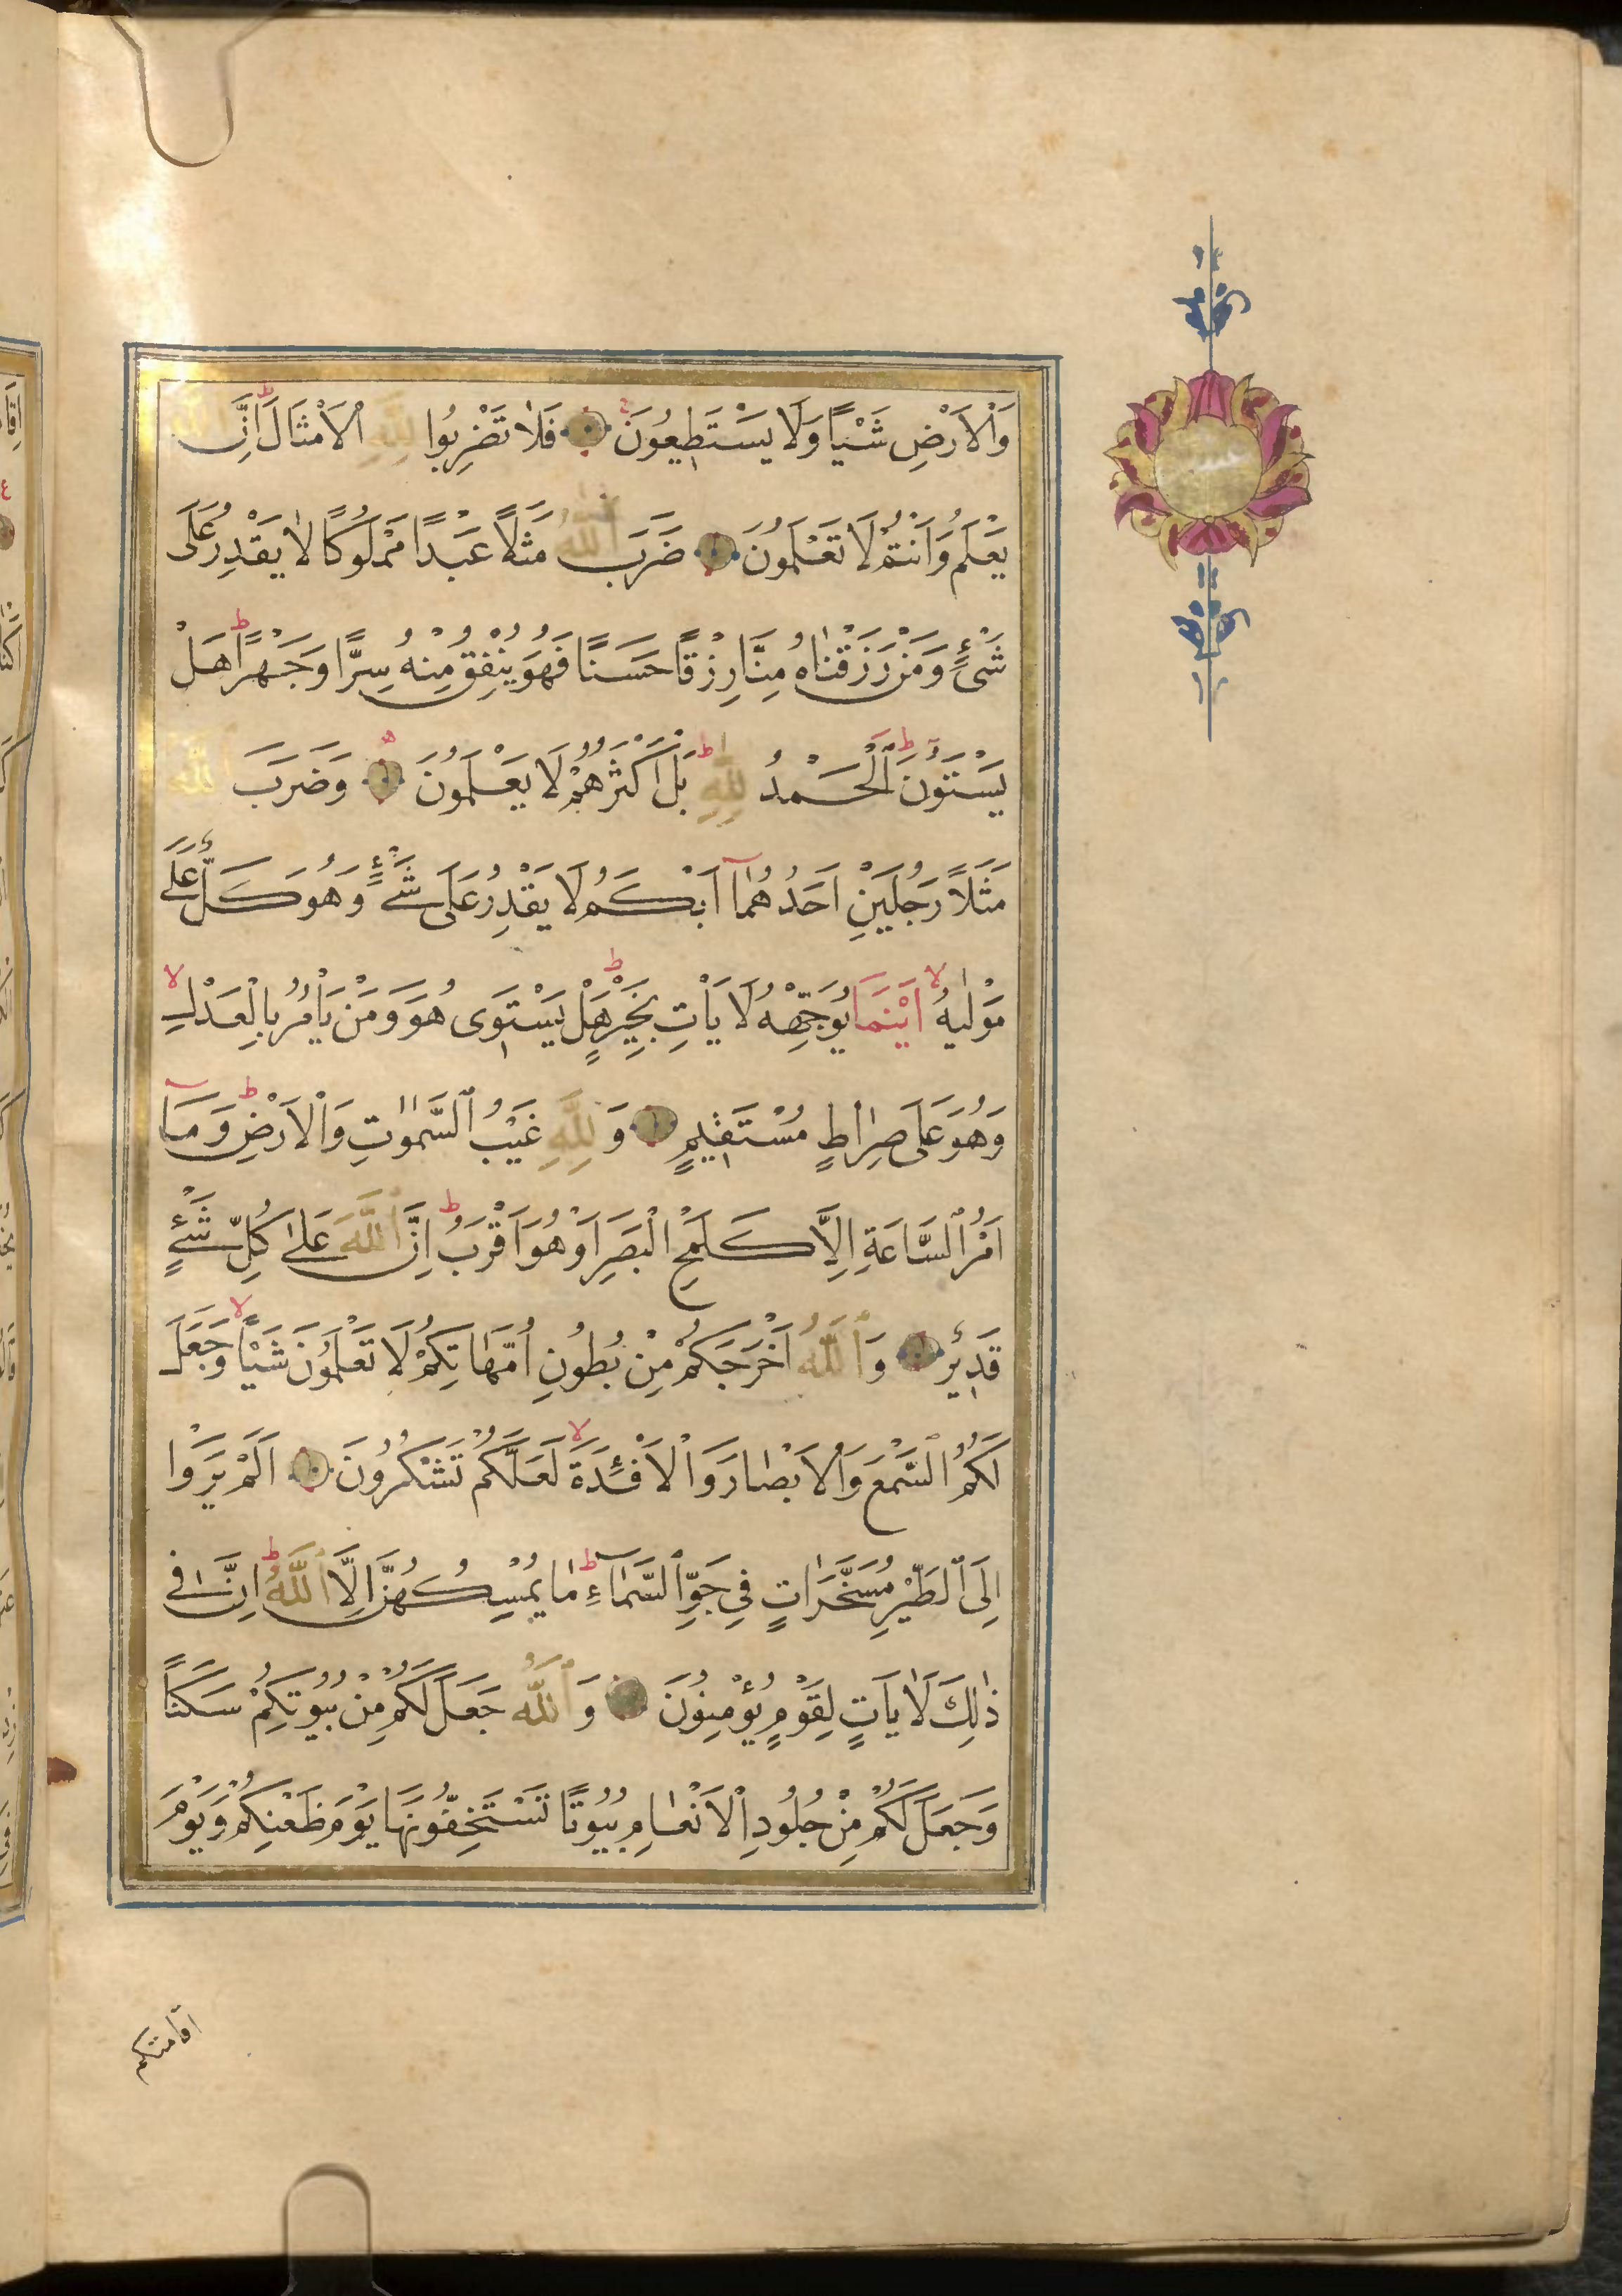 وَالْاَرْضِ شَيْـًٔا وَلَا يَسْتَطِيعُونَ فَلَا تَضْرِبُوا لِلّٰهِ الْاَمْثَالَ اِنَّ اللّٰهَ
يَعْلَمُ وَاَنْتُمْ لَا تَعْلَمُونَ ضَرَبَ اللّٰهُ مَثَلًا عَبْدًا مَمْلُوكًا لَا يَقْدِرُ عَلٰى
شَيْءٍ وَمَنْ رَزَقْنَاهُ مِنَّا رِزْقًا حَسَنًا فَهُوَ يُنْفِقُ مِنْهُ سِرًّا وَجَهْرًا هَلْ
يَسْتَوُونَ اَلْحَمْدُ لِلّٰهِ بَلْ اَكْثَرُهُمْ لَا يَعْلَمُونَ وَضَرَبَ اللّٰهُ
مَثَلًا رَجُلَيْنِ اَحَدُهُمَا اَبْكَمُ لَا يَقْدِرُ عَلٰى شَيْءٍ وَهُوَ كَلٌّ عَلٰى
مَوْلٰيهُ اَيْنَمَا يُوَجِّهْهُ لَا يَأْتِ بِخَيْرٍ هَلْ يَسْتَوِى هُوَ وَمَنْ يَأْمُرُ بِالْعَدْلِ
وَهُوَ عَلٰى صِرَاطٍ مُسْتَقِيمٍ وَلِلّٰهِ غَيْبُ السَّمٰوٰتِ وَالْاَرْضِ وَمَا
اَمْرُ السَّاعَةِ اِلَّا كَلَمْحِ الْبَصَرِ اَوْ هُوَ اَقْرَبُ اِنَّ اللّٰهَ عَلٰى كُلِّ شَيْءٍ
قَدِيرٌ وَاللّٰهُ اَخْرَجَكُمْ مِنْ بُطُونِ اُمَّهَاتِكُمْ لَا تَعْلَمُونَ شَيْـًٔا وَجَعَلَ
لَكُمُ السَّمْعَ وَالْاَبْصَارَ وَالْاَفْئِدَةَ لَعَلَّكُمْ تَشْكُرُونَ اَلَمْ يَرَوْا
اِلَى الطَّيْرِ مُسَخَّرَاتٍ فِى جَوِّ السَّمَاءِ مَا يُمْسِكُهُنَّ اِلَّا اللّٰهُ اِنَّ فِى
ذٰلِكَ لَاٰيَاتٍ لِقَوْمٍ يُؤْمِنُونَ وَاللّٰهُ جَعَلَ لَكُمْ مِنْ بُيُوتِكُمْ سَكَنًا
وَجَعَلَ لَكُمْ مِنْ جُلُودِ الْاَنْعَامِ بُيُوتًا تَسْتَخِفُّونَهَا يَوْمَ ظَعْنِكُمْ وَيَوْمَ
اقامتكم